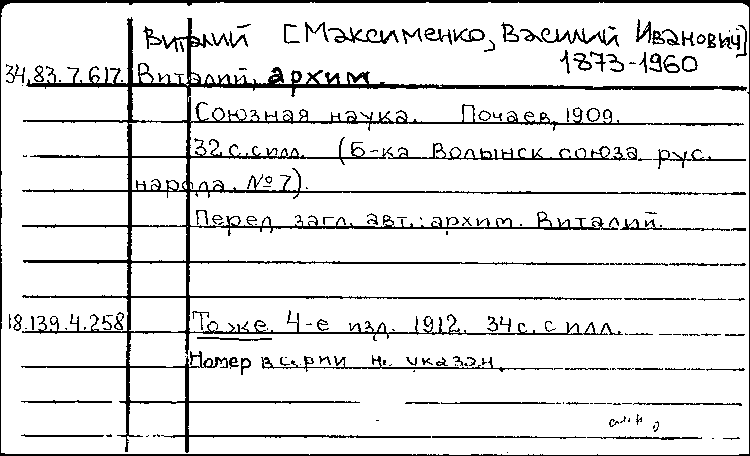 Виталий [Максименко, Василий Иванович]
1873-1960
34.83.7.617. Виталий, архим.
Союзная наука. Почаев, 1909.
32 с. с илл. (Б-ка Волынск. союза рус.
народа. №7).
Перед загл. авт.: архим. Виталий.
18.139.4.258 То же. 4-е изд. 1912. 34 с. с илл.
Номер в серии не указан.